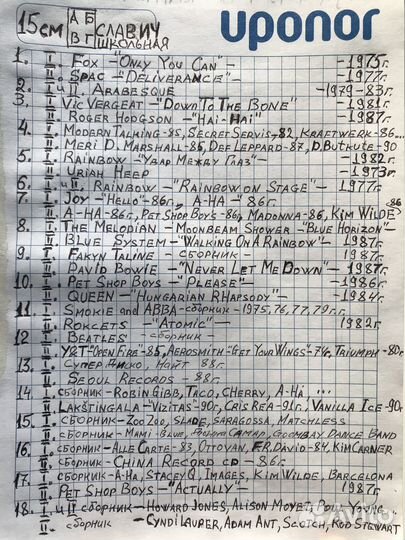 15см АБ ВГ СЛАВИЧ ШКОЛЬНАЯ
uponor
1. I. FOX - "ONLY YOU CAN" - - 1975г.
II. SPAC - "DELIVERANCE" - - 1977г.
2. I и II. ARABESQUE - 1979 - 83г.
3. I. VIC VERGEAT - "DOWN TO THE BONE" - 1981г.
II. ROGER HODGSON - "HAI-HAI" - 1987г.
4. I. MODERN TALKING - 85, SECRET SERVIS - 82, KRAFTWERK - 86...
II. MERI D. MARSHALL - 86, DEF LEPPARD - 87, D. BUTKUTE - 90
5. I. RAINBOW - "УДАР МЕЖДУ ГЛАЗ" - - 1982г.
II. URIAH HEEP - 1973г.
6. I и II. RAINBOW - "RAINBOW ON STAGE" - 1977г.
7. I. JOY - "HELLO" - 86г., A-HA - "86г.
II. A-HA - 86г., PET SHOP BOYS - 86, MADONNA - 86, KIM WILDE - 86
8. I. THE MELODIAN - MOONBEAM SHOWER - "BLUE HORIZON" -
II. BLUE SYSTEM - "WALKING ON A RAINBOW" - 1987г.
9. I. FAKYN TALINE - СБОРНИК - - 1986г.
II. DAVID BOWIE - "NEVER LET ME DOWN" - 1987г.
10. I. PET SHOP BOYS - "PLEASE" - - 1986г.
II. QUEEN - "HUNGARIAN RHAPSODY" - - 1984г.
11. I. SMOKIE and ABBA - СБОРНИК - 1975, 76, 77, 79г.г.
II. ROKCETS "ATOMIC" - 1982г.
12. I. BEATLES - СБОРНИК -
II. Y&T - "OPEN FIRE" - 85, AEROSMITH - "GET YOUR WINGS" - 74г, TRIUMPH - 80г.
13. I. СУПЕР ДИСКО, НАЙТ 88г.
II. SEOUL RECORDS - 88г.
14. I. СБОРНИК - ROBIN GIBB, TACO, CHERRY, A-HA ...
II. LAKŠTINGALA - "VIZITAS" - 90г, CRIS REA - 91г., VANILLA ICE - 90г.
15. I. СБОРНИК - ZOO ZOO, SLADE, SARAGOSSA, MATCHLESS
II. СБОРНИК - MAMI-BLUE, GOOMBAY DANCE BAND
16. I. СБОРНИК - ALLE CARTE - 83, OTTOVAN, F.R. DAVID - 84, KIM CARNER
II. СБОРНИК - CHINA RECORD CD - 86г.
17. I. СБОРНИК - A-HA, STACEY Q, IMAGES, KIM WILDE, BARCELONA
II. PET SHOP BOYS - "ACTUALLY" - 1987г.
18. I и II СБОРНИК - HOWARD JONES, ALISON MOYET, POUL YOUNG
СБОРНИК - CYNDI LAUPER, ADAM ANT, SCOTCH, ROD STEWART